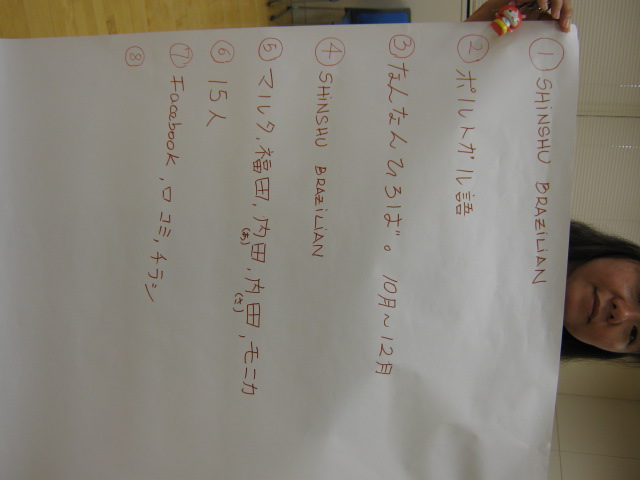 ① SHiNSHU BRAZiLiAN
② ポルトガル語
③ なんなんひろば。 10月~12月
④ SHiNSHU BRAZiLiAN
⑤ マルタ,福田,内田(あ),内田(さ),モニカ
⑥ 15人
⑦ Facebook,口コミ,チラシ
⑧